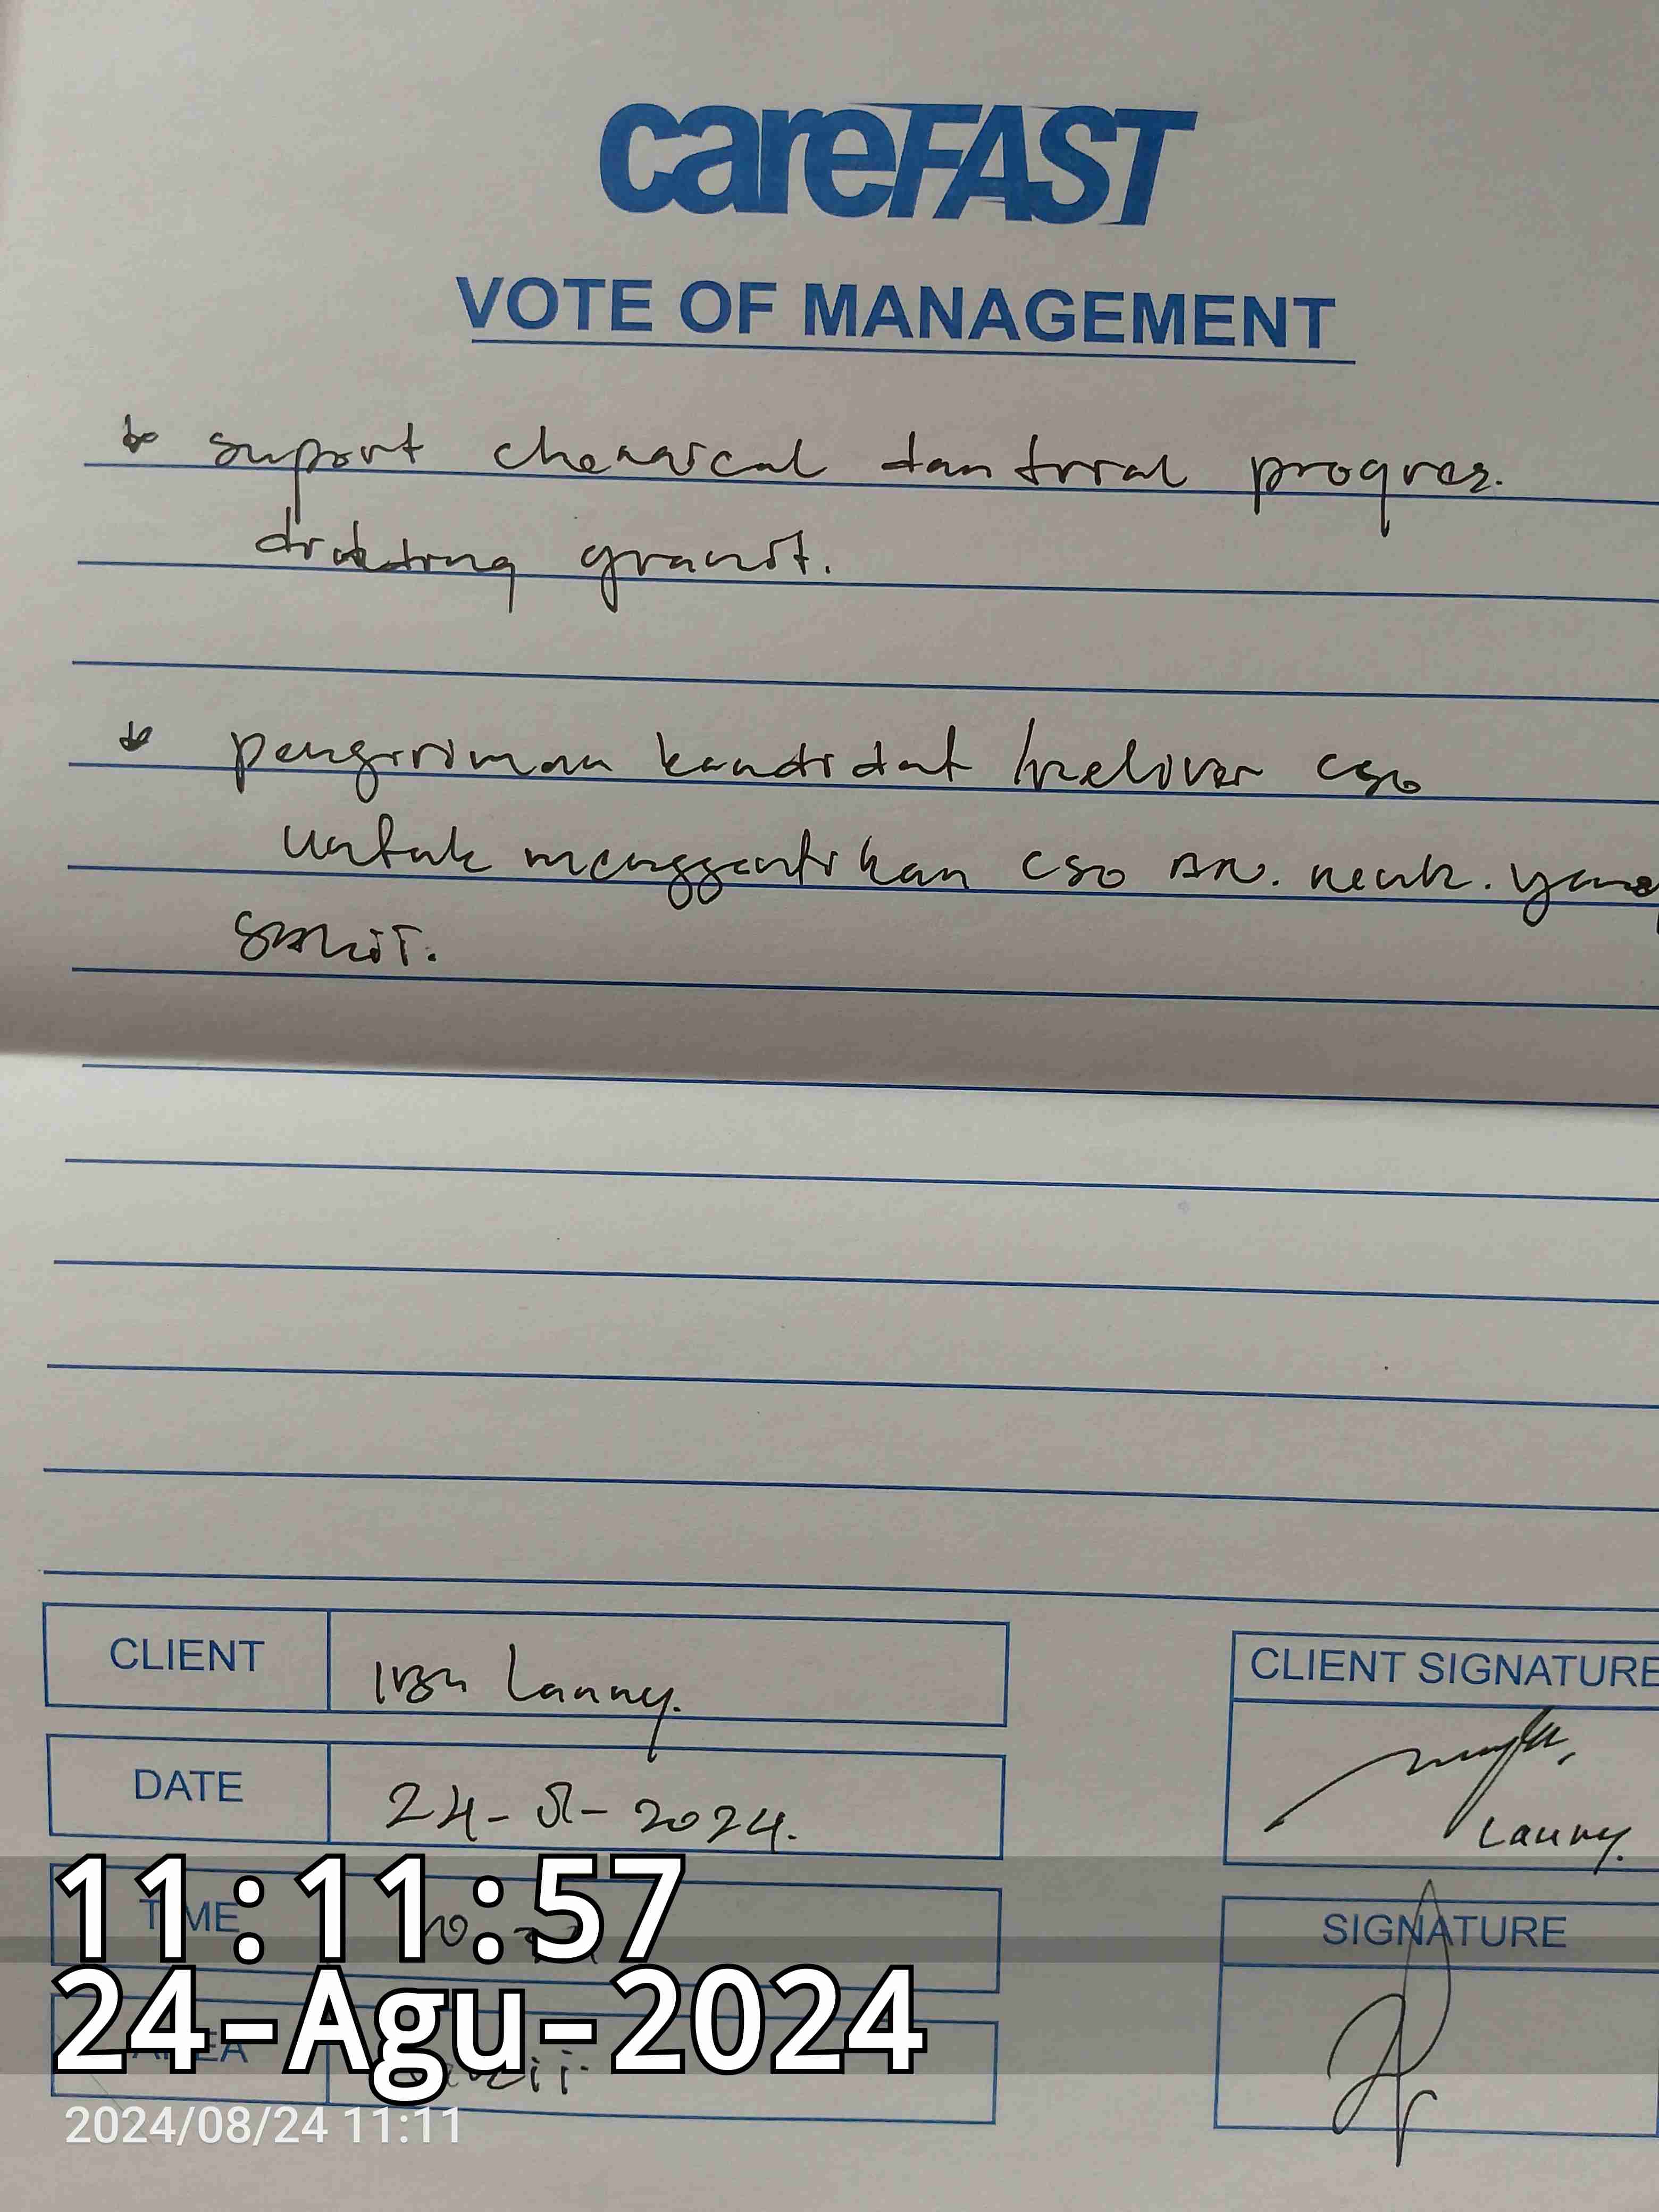 careFAST
VOTE OF MANAGEMENT
* suport chemical dan trial progres.
dinding granit.
* pengiriman kandidat / reliver cso
untuk menggantikan cso an. neuk. yang
sakit.
CLIENT
Ibu Lanny.
CLIENT SIGNATURE
DATE
24-8-2024.
Lanny.
11:11:57
TIME
SIGNATURE
24-Agu-2024
AREA
2024/08/24 11:11